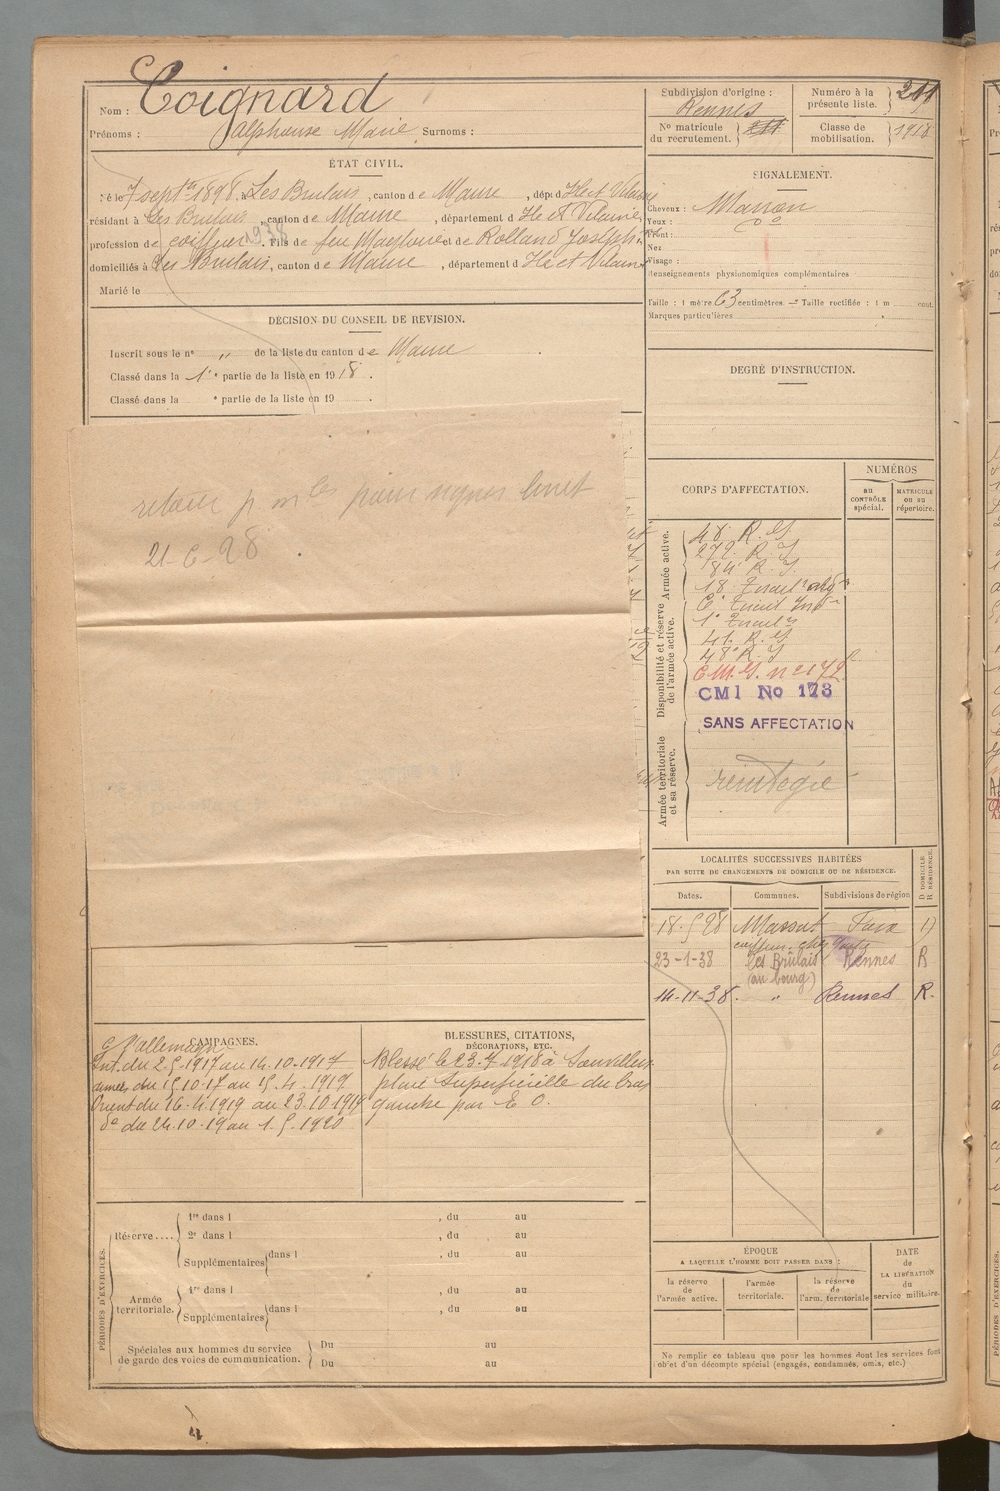 Nom : Coignard
Prénoms : Alphonse Marie Surnoms :
ÉTAT CIVIL.
Né le 7 sept. 1898, à Les Brulais, canton de Maure, dép. d'Ille et Vilaine
résidant à Les Brulais, canton de Maure, département d'Ille et Vilaine
profession de coiffeur. Fils de feu et de Rolland
1938
domiciliés à Les Brulais, canton de Maure, département d'Ille et Vilaine
Marié le
DÉCISION DU CONSEIL DE REVISION.
Inscrit sous le no " de la liste du canton de Maure
Classé dans la 1re partie de la liste en 1918.
Classé dans la e partie de la liste en 19 .
retour p
21-6-28
Subdivision d'origine :
Rennes
Numéro à la présente liste. 211
No matricule du recrutement. 211
Classe de mobilisation. 1918
SIGNALEMENT.
Cheveux : Marron
Yeux : do
Front :
Nez
Visage :
Renseignements physionomiques complémentaires
Taille : 1 mètre 63 centimètres. — Taille rectifiée : 1 m cent.
Marques particulières
DEGRÉ D'INSTRUCTION.
CORPS D'AFFECTATION.
NUMÉROS
AU CONTRÔLE spécial.
MATRICULE OU AU répertoire.
Armée active.
48e R. I.
272e R. I.
R. I.
18e Tirail
Disponibilité et réserve de l'armée active.
6e Tirail
1er Tirail
41e R. I.
48e R. I.
CMI No 173
SANS AFFECTATION
Armée territoriale et sa réserve.
reintégré
LOCALITÉS SUCCESSIVES HABITÉES
PAR SUITE DE CHANGEMENTS DE DOMICILE OU DE RÉSIDENCE.
Dates. Communes. Subdivisions de région D DOMICILE R RÉSIDENCE.
18.5 28 Massat Foix D
coiffeur chez
23-1-38 Les Brûlais Rennes R
(au bourg)
14-11-38. " Rennes R.
CAMPAGNES.
C. l'allemagne
Int. du 2.5.1917 au 14.10.1917
armées du 15.10.17 au 15.4.1919
Orient du 16.4.1919 au 23.10.1919
do du 24.10.19 au 1.5.1920
BLESSURES, CITATIONS,
DÉCORATIONS, ETC.
Blessé le 23.7.1918 à
plaie superficielle du bras
gauche par E. O.
PÉRIODES D'EXERCICES.
Réserve....
1re dans l , du au
2e dans l , du au
Supplémentaires dans l , du au
Armée territoriale.
1re dans l , du au
Supplémentaires dans l , du au
Spéciales aux hommes du service de garde des voies de communication.
Du au
Du au
ÉPOQUE
A LAQUELLE L'HOMME DOIT PASSER DANS :
la réserve de l'armée active.
l'armée territoriale.
la réserve de l'arm. territoriale
DATE de LA LIBÉRATION du service militaire.
Ne remplir ce tableau que pour les hommes dont les services font
l'objet d'un décompte spécial (engagés, condamnés, omis, etc.)